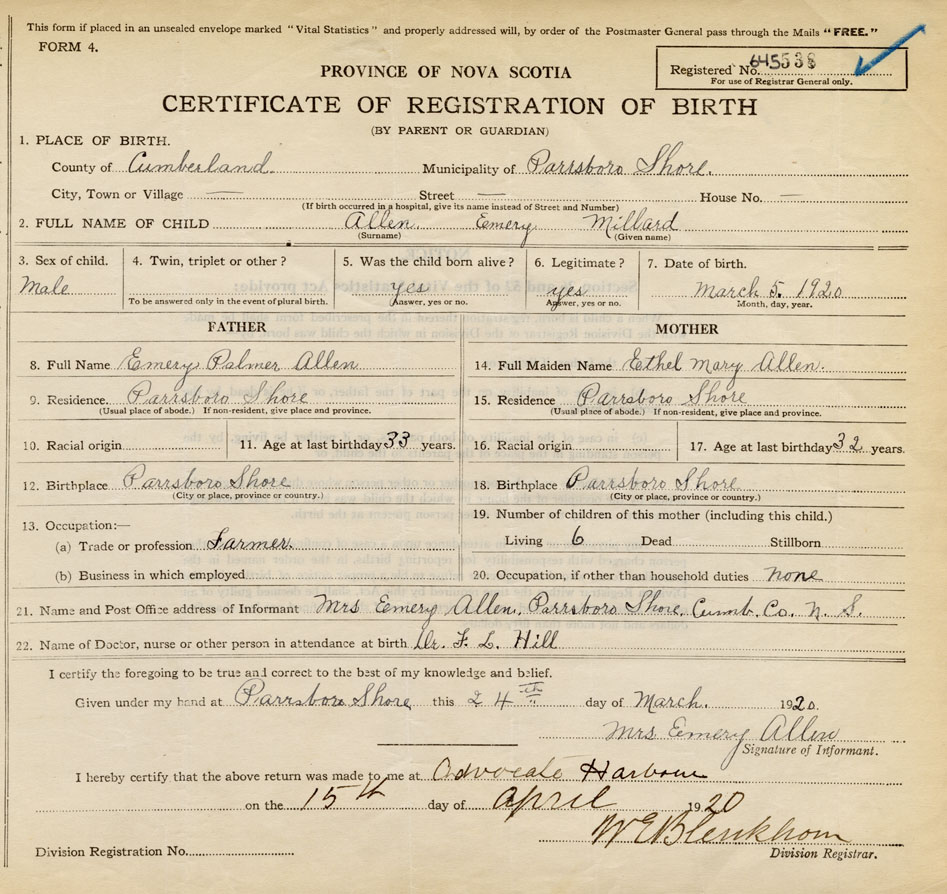 This form if placed in an unsealed envelope marked "Vital Statistics" and properly addressed will, by order of the Postmaster General pass through the Mails "FREE."
FORM 4.
Registered No. 645538
For use of Registrar General only.
PROVINCE OF NOVA SCOTIA
CERTIFICATE OF REGISTRATION OF BIRTH
(BY PARENT OR GUARDIAN)
1. PLACE OF BIRTH.
County of Cumberland. Municipality of Parrsboro Shore.
City, Town or Village — Street — House No. —
(If birth occurred in a hospital, give its name instead of Street and Number)
2. FULL NAME OF CHILD Allen Emery Millard
(Surname) (Given name)
3. Sex of child. 4. Twin, triplet or other? 5. Was the child born alive? 6. Legitimate? 7. Date of birth.
Male yes yes March 5. 1920
To be answered only in the event of plural birth. Answer, yes or no. Answer, yes or no. Month, day, year.
FATHER MOTHER
8. Full Name Emery Palmer Allen 14. Full Maiden Name Ethel Mary Allen.
9. Residence. Parrsboro Shore 15. Residence Parrsboro Shore
(Usual place of abode.) If non-resident, give place and province. (Usual place of abode.) If non-resident, give place and province.
10. Racial origin 11. Age at last birthday 33 years. 16. Racial origin 17. Age at last birthday 32 years.
12. Birthplace Parrsboro Shore 18. Birthplace Parrsboro Shore
(City or place, province or country.) (City or place, province or country.)
13. Occupation:— 19. Number of children of this mother (including this child.)
(a) Trade or profession Farmer. Living 6 Dead Stillborn
(b) Business in which employed 20. Occupation, if other than household duties none
21. Name and Post Office address of Informant Mrs Emery Allen, Parrsboro Shore, Cumb. Co. N. S.
22. Name of Doctor, nurse or other person in attendance at birth Dr. F. L. Hill
I certify the foregoing to be true and correct to the best of my knowledge and belief.
Given under my hand at Parrsboro Shore this 24th day of March. 1920.
Mrs Emery Allen
Signature of Informant.
I hereby certify that the above return was made to me at Advocate Harbour
on the 15th day of April 1920
W E Blenkhorn
Division Registration No. Division Registrar.